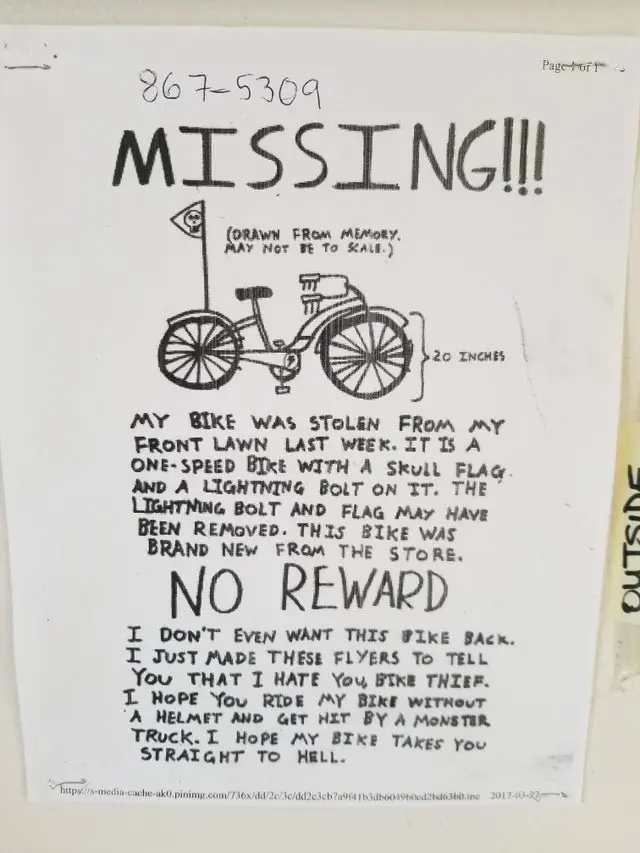 Page 1 of 1
867-5309
MISSING!!!
(DRAWN FROM MEMORY.
MAY NOT BE TO SCALE.)
20 INCHES
MY BIKE WAS STOLEN FROM MY
FRONT LAWN LAST WEEK. IT IS A
ONE-SPEED BIKE WITH A SKULL FLAG
AND A LIGHTNING BOLT ON IT. THE
LIGHTNING BOLT AND FLAG MAY HAVE
BEEN REMOVED. THIS BIKE WAS
BRAND NEW FROM THE STORE.
NO REWARD
I DON'T EVEN WANT THIS BIKE BACK.
I JUST MADE THESE FLYERS TO TELL
YOU THAT I HATE YOU, BIKE THIEF.
I HOPE YOU RIDE MY BIKE WITHOUT
A HELMET AND GET HIT BY A MONSTER
TRUCK. I HOPE MY BIKE TAKES YOU
STRAIGHT TO HELL.
OUTSIDE
2017-03-27